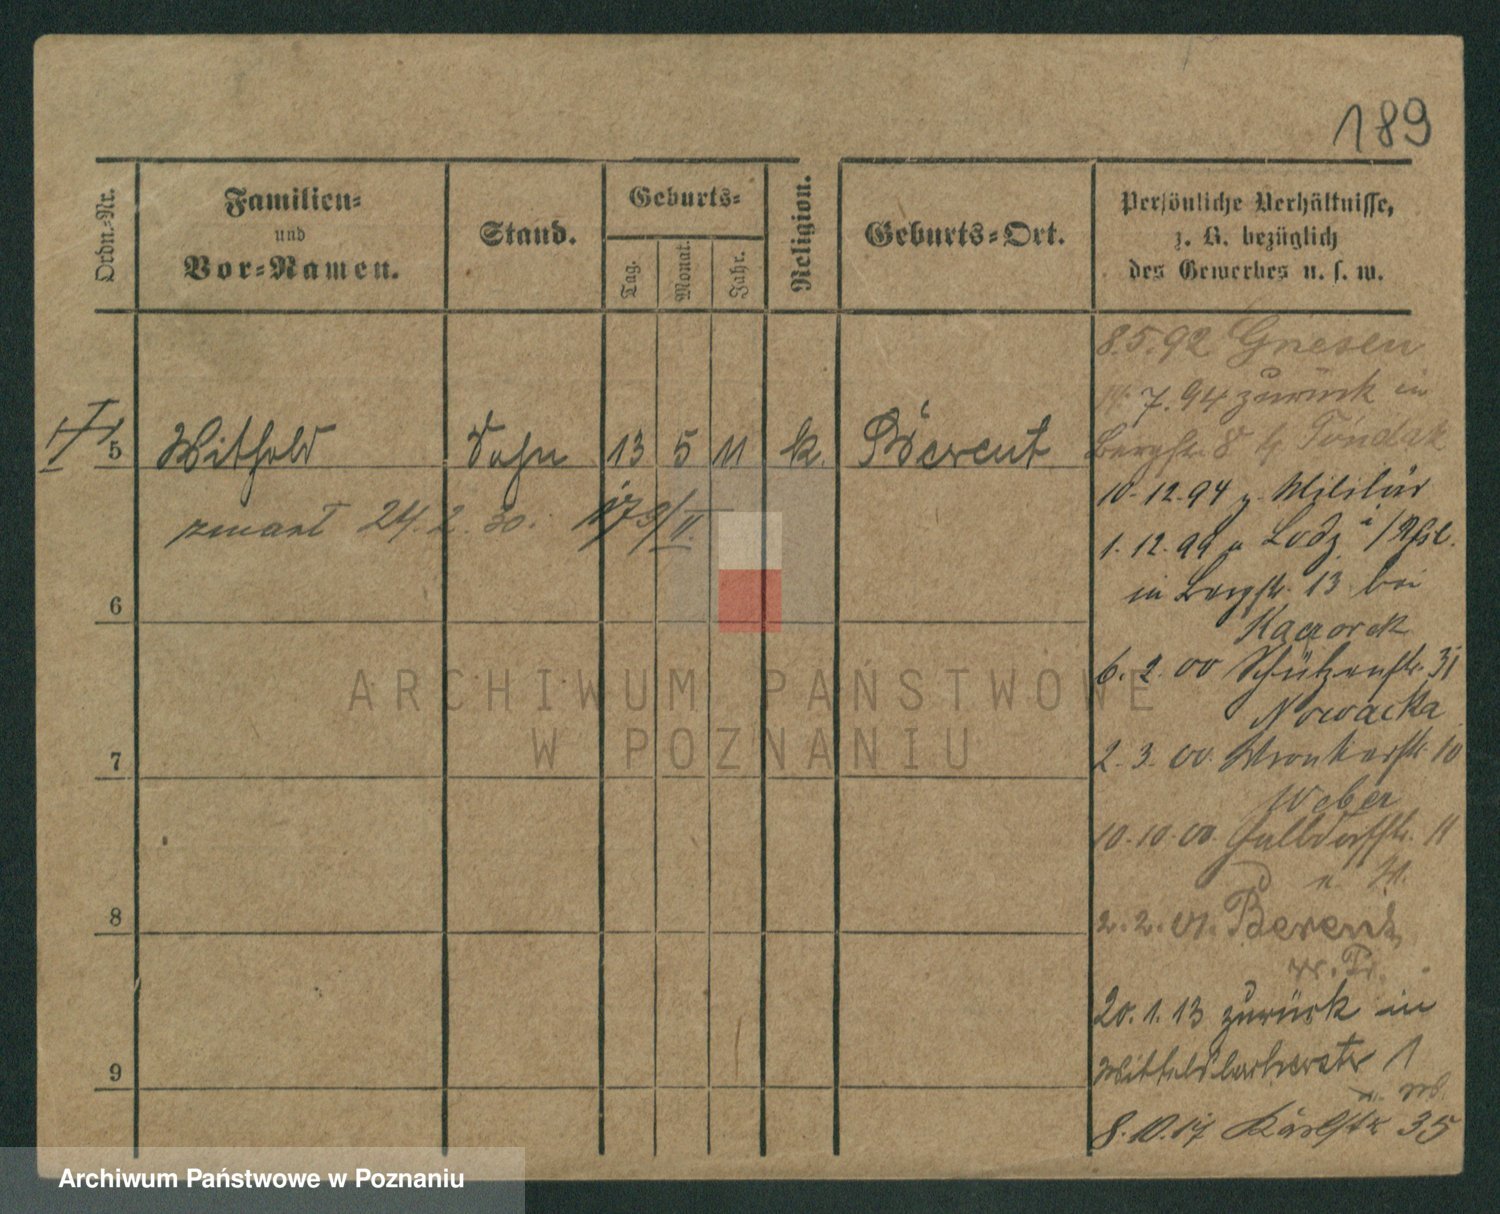 189
Ordn.-Nr.
Familien-
und
Vor-Namen.
Stand.
Geburts-
Tag.
Monat.
Jahr.
Religion.
Geburts-Ort.
Persönliche Verhältnisse,
z. B. bezüglich
des Gewerbes u. s. w.
5 Withold Sohn 13 5 11 k. Berent
zmarł 24. 2. 30.
6
7
8
9
8.5.92 Gnesen
7.94 zurück in
Bergstr. 8
10.12.94 z. Militär
1.12.99 v. Lodz
in Bergstr. 13 bei
Kaczorek
6.2.00 Schützenstr. 31
Nowacka
2.3.00. Wronkerstr. 10
Weber
10.10.00. Halbdorfstr. 11
2.2.01. Berent
W. Pr.
20.1.13 zurück in
1
8.10.17 Karlstr 35
ARCHIWUM PAŃSTWOWE
W POZNANIU
Archiwum Państwowe w Poznaniu